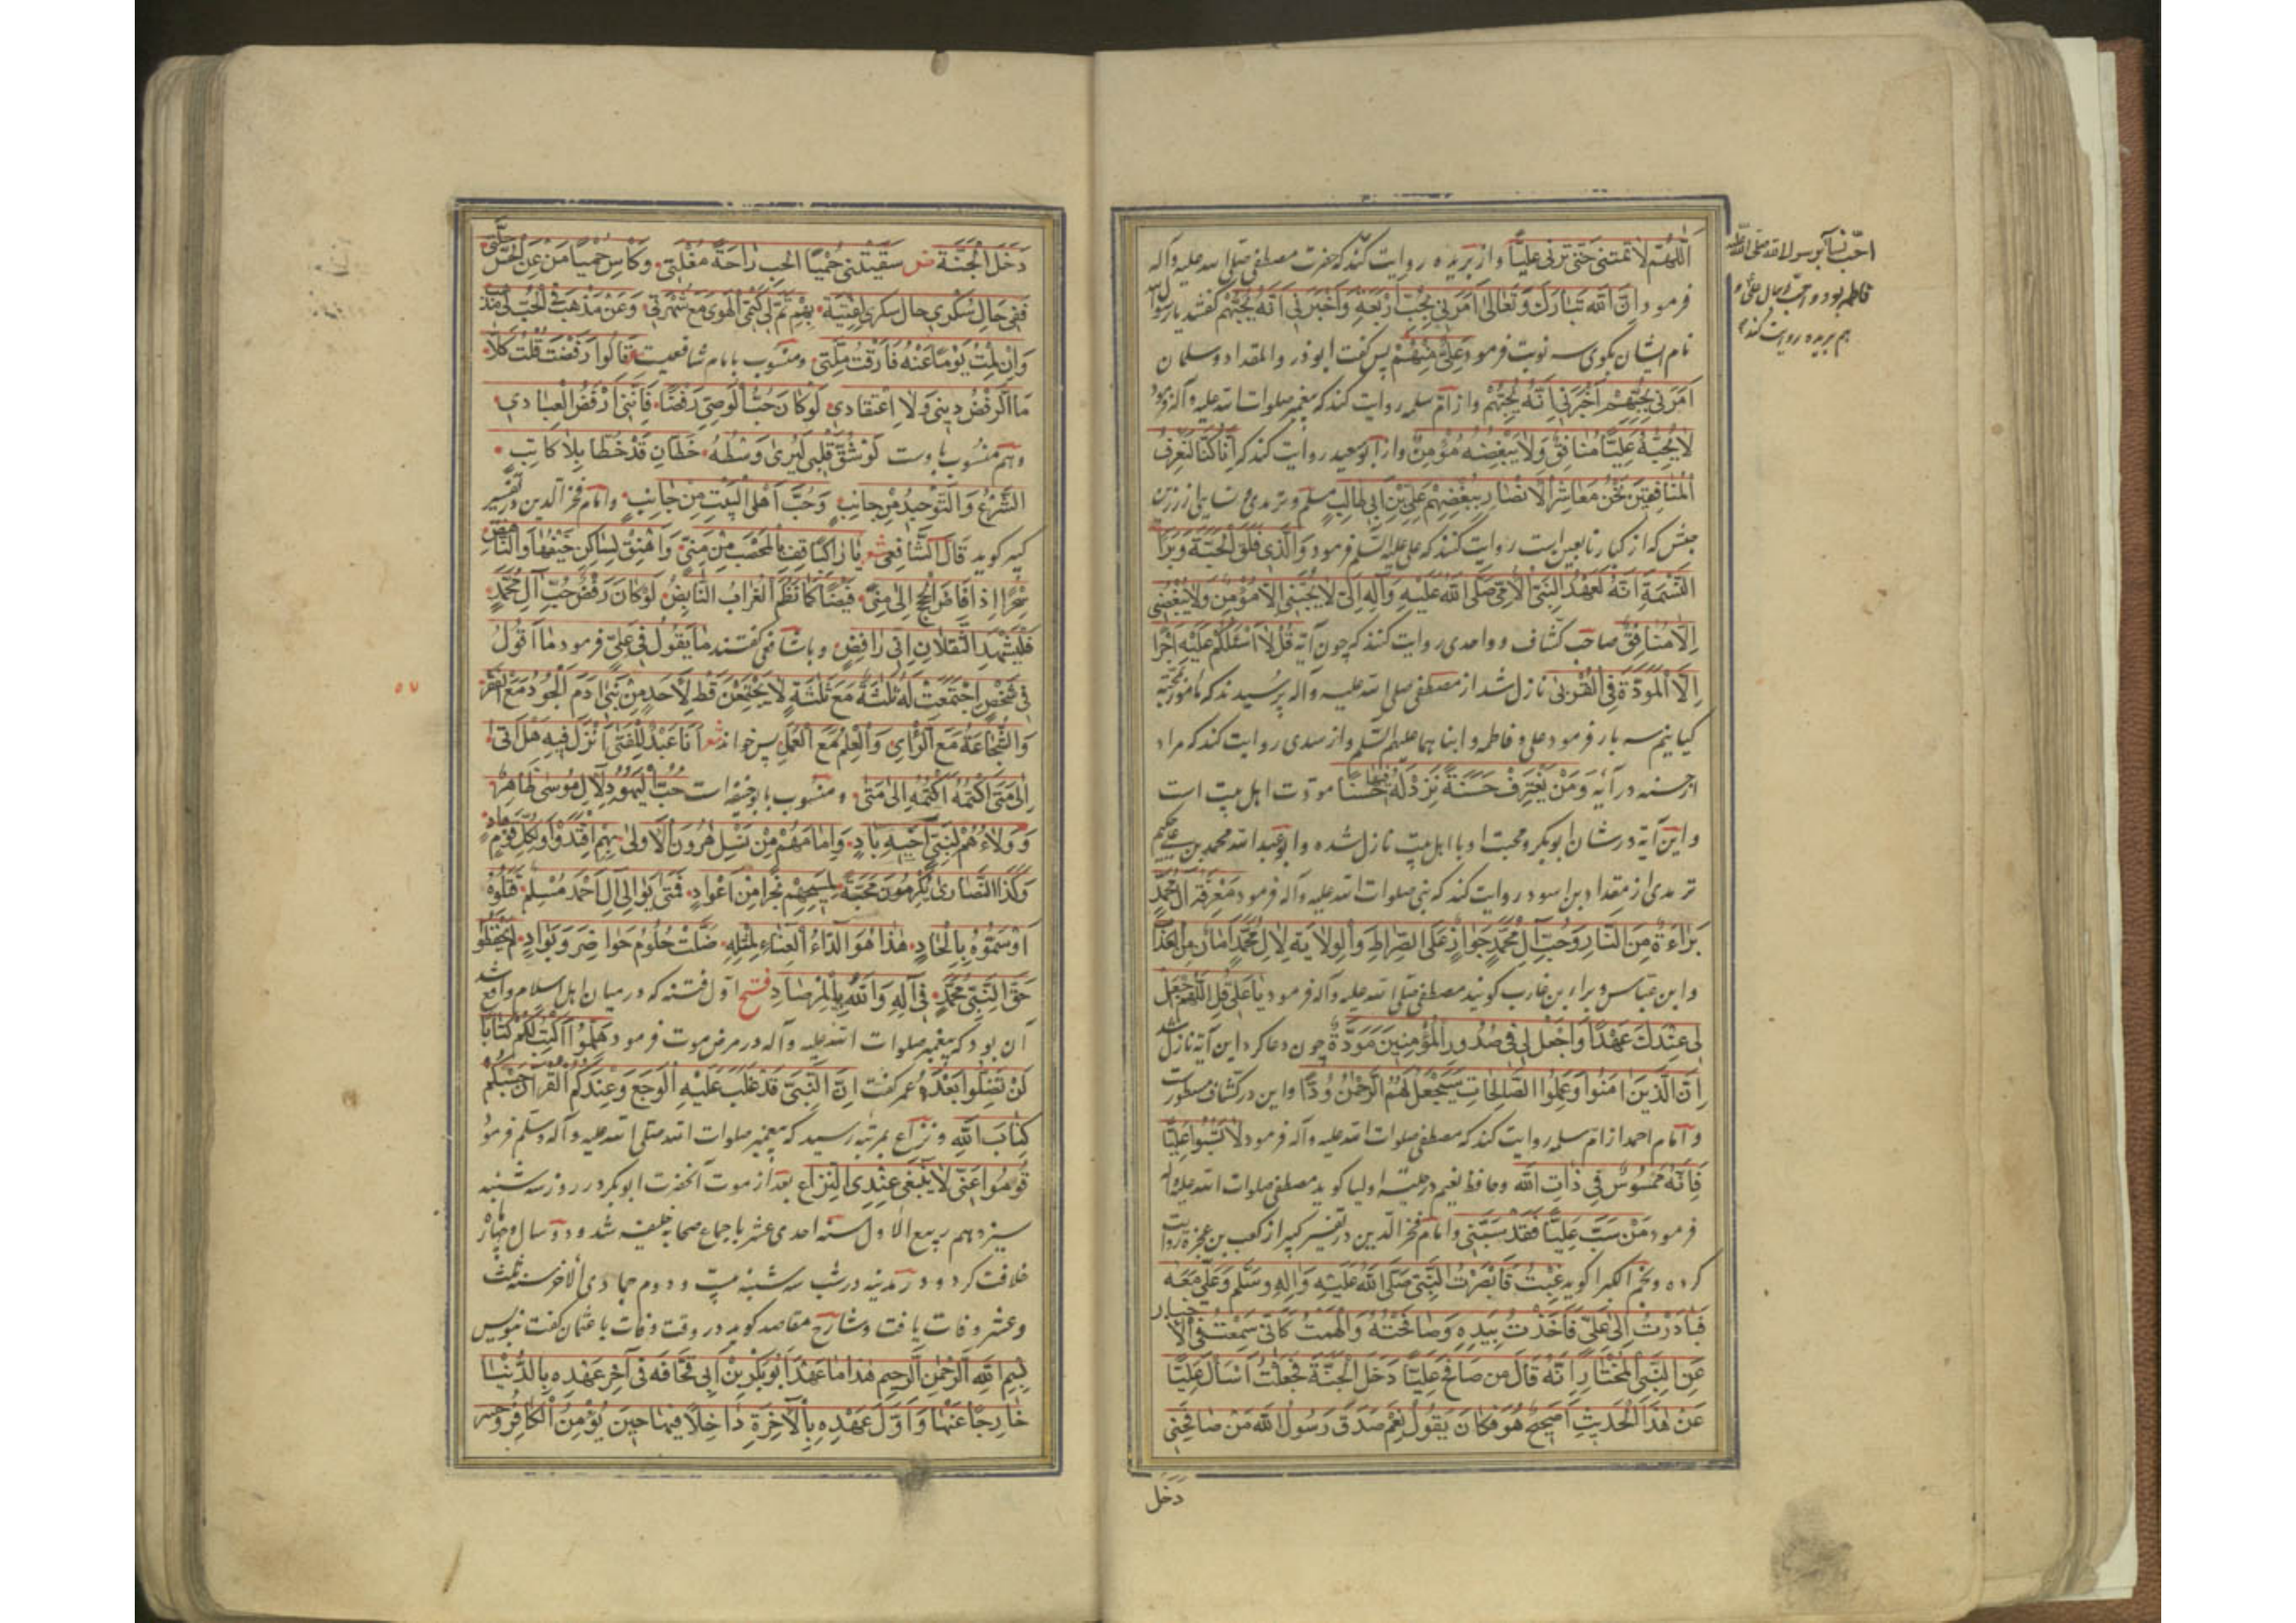 اَللّٰهُمَّ لَا تُمِتْنِي حَتّٰى تُرِنِي عَلِيًّا و از بریده روایت کند که حضرت مصطفی صلی الله علیه و آله
فرمود اِنَّ اللهَ تَبَارَكَ وَتَعَالٰى اَمَرَنِي بِحُبِّ اَرْبَعَةٍ وَاَخْبَرَنِي اَنَّهُ يُحِبُّهُمْ گفتند یا رسول الله
نام ایشان بگوی سه نوبت فرمود عَلِيٌّ مِنْهُمْ پس گفت ابوذر و المقداد و سلمان
اَمَرَنِي بِحُبِّهِمْ اَخْبَرَنِي اَنَّهُ يُحِبُّهُمْ و از ام سلمه روایت کند که پیغمبر صلوات الله علیه و آله فرمود
لَا يُحِبُّ عَلِيًّا مُنَافِقٌ وَلَا يُبْغِضُهُ مُؤْمِنٌ و از ابو سعید روایت کند که اِنَّا كُنَّا لَنَعْرِفُ
الْمُنَافِقِينَ نَحْنُ مَعَاشِرَ الْاَنْصَارِ بِبُغْضِهِمْ عَلِيَّ بْنَ اَبِي طَالِبٍ مسلم و ترمذی و نسایی از زر بن
حبیش که از کبار تابعین است روایت کنند که علی علیه السلم فرمود وَالَّذِي فَلَقَ الْحَبَّةَ وَبَرَأَ
النَّسَمَةَ اِنَّهُ لَعَهْدُ النَّبِيِّ الْاُمِّيِّ صَلَّى اللهُ عَلَيْهِ وَآلِهِ اِلَيَّ لَا يُحِبُّنِي اِلَّا مُؤْمِنٌ وَلَا يُبْغِضُنِي
اِلَّا مُنَافِقٌ صاحب کشاف و واحدی روایت کنند که چون آیه قُلْ لَا اَسْئَلُكُمْ عَلَيْهِ اَجْرًا
اِلَّا الْمَوَدَّةَ فِي الْقُرْبٰى نازل شد از مصطفی صلی الله علیه و آله پرسیدند که مامور بمحبة
کیانیم سه بار فرمود علی و فاطمه و ابناهما علیهم السلم و از سدی روایت کند که مراد
از حسنه در آیه وَمَنْ يَقْتَرِفْ حَسَنَةً نَزِدْ لَهُ فِيهَا حُسْنًا مودت اهل بیت است
و این آیه در شان ابوبکر و محبت او با اهل بیت نازل شده و ابو عبد الله محمد بن علی حکیم
ترمذی از مقداد بن اسود روایت کند که نبی صلوات الله علیه و آله فرمود مَعْرِفَةُ آلِ مُحَمَّدٍ
بَرَاءَةٌ مِنَ النَّارِ وَحُبُّ آلِ مُحَمَّدٍ جَوَازٌ عَلَى الصِّرَاطِ وَالْوِلَايَةُ لِآلِ مُحَمَّدٍ اَمَانٌ مِنَ الْعَذَابِ
و ابن عباس و براء بن عازب گویند مصطفی صلی الله علیه و آله فرمود يَا عَلِيُّ قُلِ اللّٰهُمَّ اجْعَلْ
لِي عِنْدَكَ عَهْدًا وَاجْعَلْ لِي فِي صُدُورِ الْمُؤْمِنِينَ مَوَدَّةً چون دعا کرد این آیه نازل شد
اِنَّ الَّذِينَ اٰمَنُوا وَعَمِلُوا الصَّالِحَاتِ سَيَجْعَلُ لَهُمُ الرَّحْمٰنُ وُدًّا و این در کشاف مسطورست
و امام احمد از ام سلمه روایت کند که مصطفی صلوات الله علیه و آله فرمود لَا تَسُبُّوا عَلِيًّا
فَاِنَّهُ مَمْسُوسٌ فِي ذَاتِ اللهِ و حافظ نعیم در حلیه اولیا گوید مصطفی صلوات الله علیه و آله
فرمود مَنْ سَبَّ عَلِيًّا فَقَدْ سَبَّنِي و امام فخر الدین در تفسیر کبیر از کعب بن عجزة روایت
کرده و نجم الکبرا گوید غِبْتُ فَاَبْصَرْتُ النَّبِيَّ صَلَّى اللهُ عَلَيْهِ وَاٰلِهِ وَسَلَّمَ وَعَلِيٌّ مَعَهُ
فَبَادَرْتُ اِلٰى عَلِيٍّ فَاَخَذْتُ بِيَدِهِ وَصَافَحْتُهُ وَاُلْهِمْتُ كَاَنِّي سَمِعْتُ فِي الْاَخْبَارِ
عَنِ النَّبِيِّ الْمُخْتَارِ اَنَّهُ قَالَ مَنْ صَافَحَ عَلِيًّا دَخَلَ الْجَنَّةَ فَجَعَلْتُ اَسْأَلُ عَلِيًّا
عَنْ هٰذَا الْحَدِيثِ اَصَحِيحٌ هُوَ فَكَانَ يَقُولُ نَعَمْ صَدَقَ رَسُولُ اللهِ مَنْ صَافَحَنِي
دخل
احب نسا بر رسول الله صلی الله علیه
فاطمه بود و احب رجال علی و
هم بریده روایت کند
دَخَلَ الْجَنَّةَ شعر سَقَيْتَنِي حُمَيَّا الْحُبِّ رَاحَةُ مُقْلَتِي وَكَأْسِي مُحَيَّا مَنْ عَنِ الْحُسْنِ جَلَّتِ
فَفِي حَانِ سُكْرِي حَانَ شُكْرِي لِفِتْيَةٍ بِهِمْ تَمَّ لِي كَتْمُ الْهَوٰى مَعَ شُهْرَتِي وَعَنْ مَذْهَبِي فِي الْحُبِّ لِي مَذْهَبٌ
وَاِنْ مِلْتُ يَوْمًا عَنْهُ فَارَقْتُ مِلَّتِي و منسوب بامام شافعیست قَالُوا رَفَضْتَ قُلْتُ كَلَّا
مَا الرَّفْضُ دِينِي وَلَا اعْتِقَادِي لَوْ كَانَ حُبُّ الْوَصِيِّ رَفْضًا فَاِنَّنِي اَرْفَضُ الْعِبَادِ
و هم منسوب باوست لَوْ شُقَّ قَلْبِي لَيُرٰى وَسْطَهُ خَطَّانِ قَدْ خُطَّا بِلَا كَاتِبِ
الشَّرْعُ وَالتَّوْحِيدُ مِنْ جَانِبٍ وَحُبُّ اَهْلِ الْبَيْتِ مِنْ جَانِبٍ و امام فخر الدین در تفسیر
کبیر گوید قَالَ الشَّافِعِي شعر يَا رَاكِبًا قِفْ بِالْمُحَصَّبِ مِنْ مِنًى وَاهْتِفْ بِسَاكِنِ خَيْفِهَا وَالنَّاهِضِ
سَحَرًا اِذَا فَاضَ الْحَجِيجُ اِلٰى مِنًى فَيْضًا كَمَا نَظَمَ الْغُرَابُ النَّابِضُ لَوْ كَانَ رَفْضٌ حُبُّ آلِ مُحَمَّدٍ
فَلْيَشْهَدِ الثَّقَلَانِ اِنِّي رَافِضِي و با شافعی گفتند مَا يَقُولُ فِي عَلِيٍّ فرمود مَا اَقُولُ
فِي شَخْصٍ اِجْتَمَعَتْ لَهُ ثَلٰثَةٌ مَعَ ثَلٰثَةٍ لَا يَجْتَمِعْنَ قَطُّ لِاَحَدٍ مِنْ بَنِي اٰدَمَ الْجُودُ مَعَ الْفَقْرِ
وَالشُّجَاعَةُ مَعَ الرَّأْيِ وَالْعِلْمُ مَعَ الْعَمَلِ پس خواند شعر اَنَا عَبْدٌ لِلْفَتٰى اُنْزِلَ فِيهِ هَلْ اَتٰى
اِلٰى مَتٰى اَكْتُمُهُ اَكْتُمُهُ اِلٰى مَتٰى و منسوب بابو حنیفه است حُبُّ الْيَهُودِ لِآلِ مُوسٰى ظَاهِرٌ
وَوَلَاءُهُمْ لِبَنِي اَخِيهِ بَادٍ وَاِمَامُهُمْ مِنْ نَسْلِ هٰرُونَ الْاُولٰى بِهِمِ اقْتَدَوْا وَلِكُلِّ قَوْمٍ هَادٍ
وَكَذَا النَّصَارٰى يُكْرِمُونَ مَحَبَّةً لِمَسِيحِهِمْ نَجْرًا مِنْ اَعْوَادٍ فَمَتٰى يُوَالِي آلَ اَحْمَدَ مُسْلِمٌ قَتَلُوهُ
اَوْ سَمَّوْهُ بِالْاِلْحَادِ هٰذَا هُوَ الدَّاءُ الْعَيَاءُ لِمِثْلِهِ ضَلَّتْ حُلُومُ حَوَاضِرَ وَبَوَادٍ لَمْ يَحْفَظُوا
حَقَّ النَّبِيِّ مُحَمَّدٍ فِي آلِهِ وَاللهُ بِالْمِرْصَادِ فتح اول فتنه که در میان اهل اسلام واقع شد
آن بود که پیغمبر صلوات الله علیه و آله در مرض موت فرمود هَلُمُّوا اَكْتُبْ لَكُمْ كِتَابًا
لَنْ تَضِلُّوا بَعْدَهُ عمر گفت اِنَّ النَّبِيَّ قَدْ غَلَبَ عَلَيْهِ الْوَجَعُ وَعِنْدَكُمُ الْقُرْآنُ حَسْبُكُمْ
كِتَابُ اللهِ و نزاع بمرتبه رسید که پیغمبر صلوات الله صلی الله علیه و آله و سلم فرمود
قُومُوا عَنِّي لَا يَنْبَغِي عِنْدِي النِّزَاعُ بعد از موت آنحضرت ابوبکر در روز سه شنبه
سیزدهم ربیع الاول سنه احدی عشر باجماع صحابه خلیفه شد و دو سال و چهار ماه
خلافت کرد و در مدینه در شب سه شنبه بیست و دوم جمادی الاخر سنه ثلث
و عشر وفات یافت و شارح مقاصد گوید در وقت وفات با عثمان گفت بنویس
بِسْمِ اللهِ الرَّحْمٰنِ الرَّحِيمِ هٰذَا مَا عَهِدَ اَبُو بَكْرِ بْنُ اَبِي قُحَافَه فِي آخِرِ عَهْدِهِ بِالدُّنْيَا
خَارِجًا عَنْهَا وَاَوَّلَ عَهْدِهِ بِالْآخِرَةِ دَاخِلًا فِيهَا حِينَ يُؤْمِنُ الْكَافِرُ وَ
۵۷